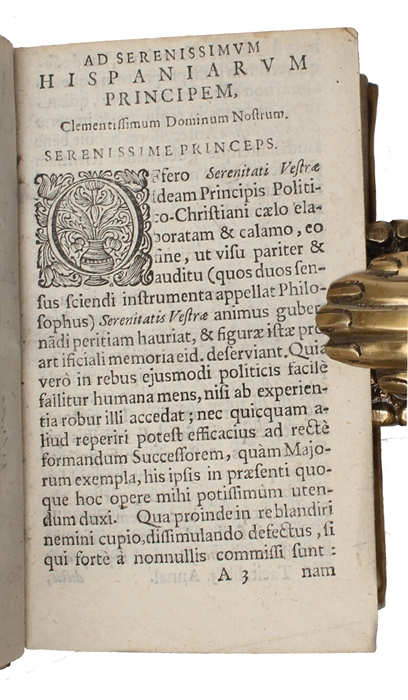 AD SERENISSIMVM
HISPANIARVM
PRINCIPEM,
Clementissimum Dominum Nostrum.
SERENISSIME PRINCEPS.
OFfero Serenitati Vestræ
Ideam Principis Politi-
co-Christiani cælo ela-
boratam & calamo, eo
fine, ut visu pariter &
auditu (quos duos sen-
sus sciendi instrumenta appellat Philo-
sophus) Serenitatis Vestræ animus guber-
nãdi peritiam hauriat, & figuræ istæ pro
artificiali memoria eid. deserviant. Quia
verò in rebus ejusmodi politicis facilè
fallitur humana mens, nisi ab experien-
tia robur illi accedat; nec quicquam a-
liud reperiri potest efficacius ad rectè
formandum Successorem, quàm Majo-
rum exempla, his ipsis in præsenti quo-
que hoc opere mihi potissimum uten-
dum duxi. Qua proinde in re blandiri
nemini cupio, dissimulando defectus, si
qui fortè à nonnullis commissi sunt :
A 3 nam